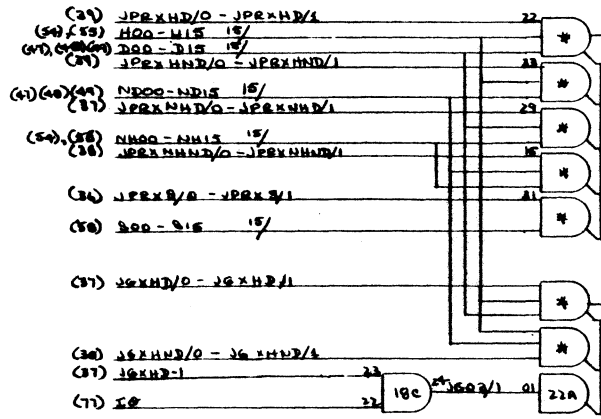 (39) JPRXHD/0 - JPRXHD/1 22
(54),(55) H00 - H15 15/
D00 - D15 15/
JPRXHND/0 - JPRXHND/1
(47)(48)(49) ND00 - ND15 15/
(37) JPRXNHD/0 - JPRXNHD/1 29
NH00 - NH15 15/
(38) JPRXNHND/0 - JPRXNHND/1
JPRXS/0 - JPRXS/1 31
S00 - S15 15/
(37) JGXHD/0 - JGXHD/1
JGXHND/0 - JGXHND/1
(37) JGXHD-1 23
18C 24 01 22A
(77) 22